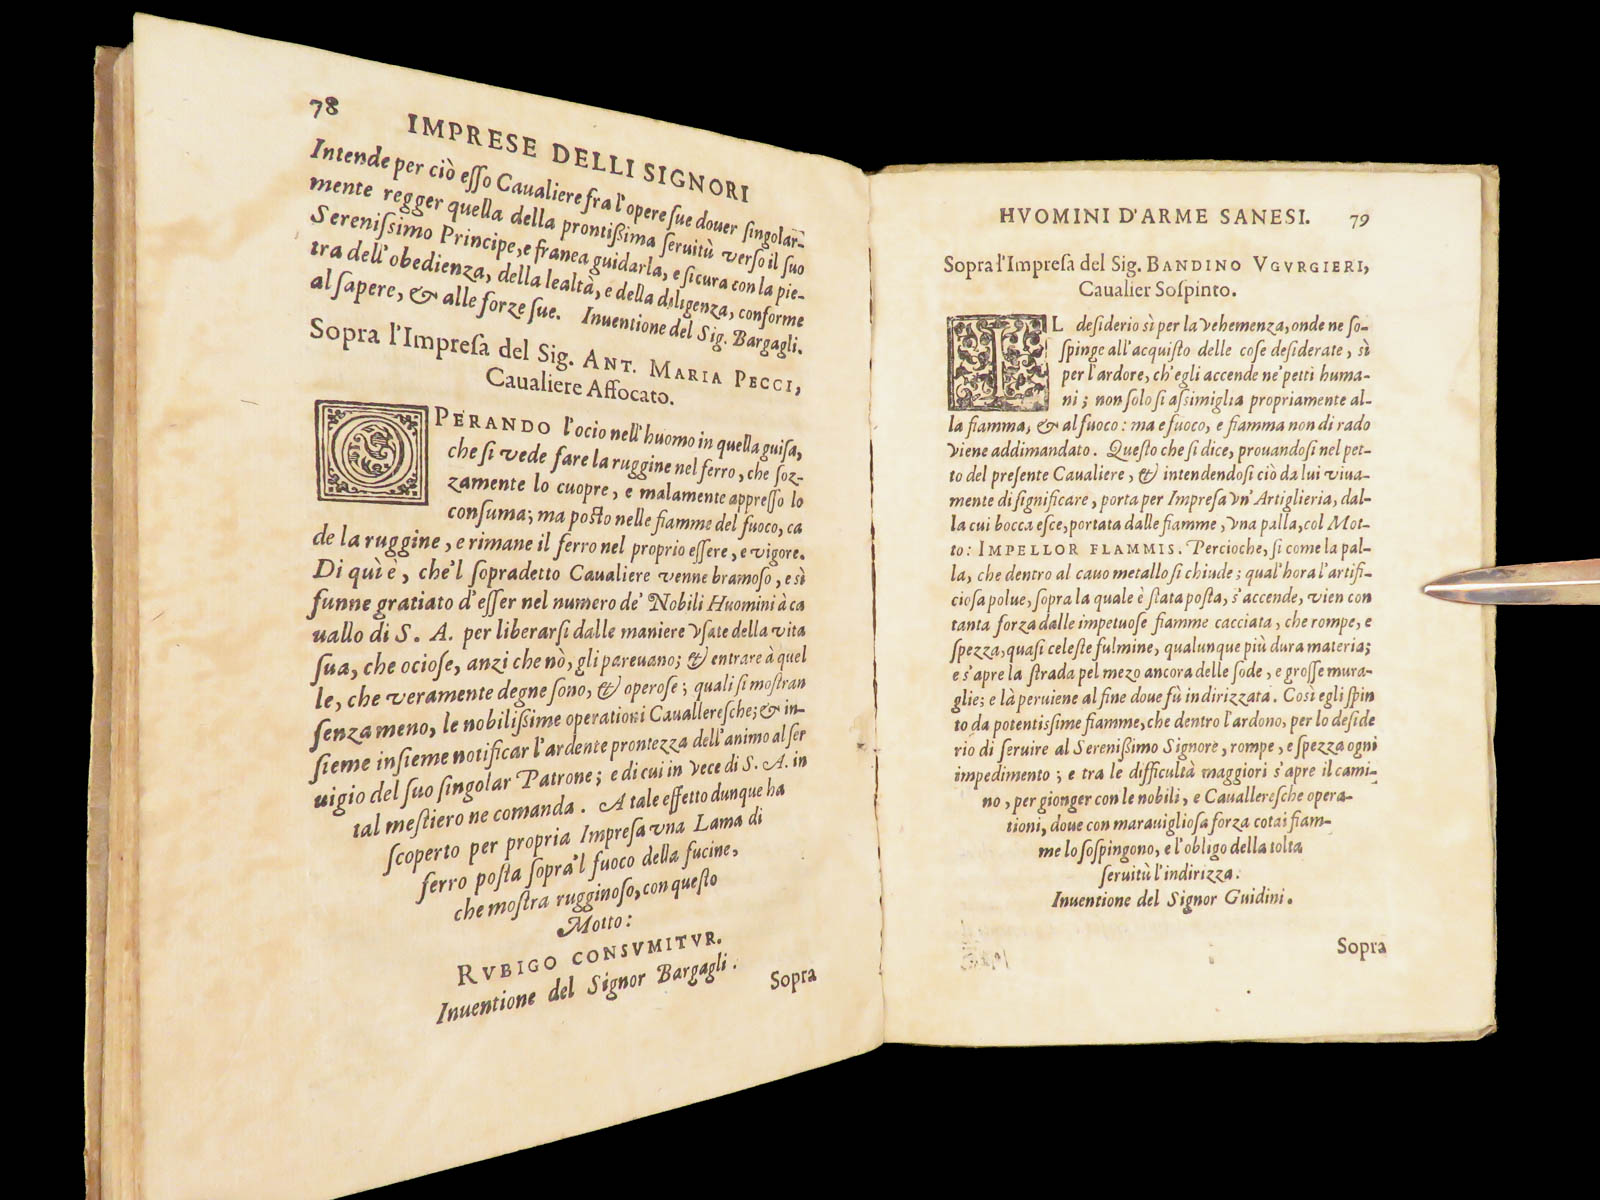 78
IMPRESE DELLI SIGNORI
Intende per ciò esso Caualiere fra l'opere sue douer singolar-
mente regger quella della prontißima seruitù verso il suo
Serenissimo Principe, e franca guidarla, e sicura con la pie-
tra dell'obedienza, della lealtà, e della diligenza, conforme
al sapere, & alle forze sue. Inuentione del Sig. Bargagli.
Sopra l'Impresa del Sig. ANT. MARIA PECCI,
Caualiere Affocato.
OPERANDO l'ocio nell'huomo in quella guisa,
che si vede fare la ruggine nel ferro, che soz-
zamente lo cuopre, e malamente appresso lo
consuma; ma posto nelle fiamme del fuoco, ca
de la ruggine, e rimane il ferro nel proprio essere, e vigore.
Di qui è, che'l sopradetto Caualiere venne bramoso, e sì
funne gratiato d'esser nel numero de' Nobili Huomini à ca
uallo di S. A. per liberarsi dalle maniere vsate della vita
sua, che ociose, anzi che nò, gli pareuano; & entrare à quel
le, che veramente degne sono, & operose; quali si mostran
senza meno, le nobilissime operationi Caualleresche; & in-
sieme insieme notificar l'ardente prontezza dell'animo al ser
uigio del suo singolar Patrone; e di cui in vece di S. A. in
tal mestiero ne comanda. A tale effetto dunque ha
scoperto per propria Impresa vna Lama di
ferro posta sopra'l fuoco della fucine,
che mostra rugginoso, con questo
Motto:
RVBIGO CONSVMITVR.
Inuentione del Signor Bargagli.
Sopra
HVOMINI D'ARME SANESI. 79
Sopra l'Impresa del Sig. BANDINO VGVRGIERI,
Caualier Sospinto.
IL desiderio sì per la vehemenza, onde ne so-
spinge all'acquisto delle cose desiderate, sì
per l'ardore, ch'egli accende ne' petti huma-
ni; non solo si assimiglia propriamente al-
la fiamma, & al fuoco: ma e fuoco, e fiamma non di rado
viene addimandato. Questo che si dice, prouandosi nel pet-
to del presente Caualiere, & intendendosi ciò da lui viua-
mente di significare, porta per Impresa vn' Artiglieria, dal-
la cui bocca esce, portata dalle fiamme, vna palla, col Mot-
to: IMPELLOR FLAMMIS. Percioche, si come la pal-
la, che dentro al cauo metallo si chiude; qual'hora l'artifi-
ciosa polue, sopra la quale è stata posta, s'accende, vien con
tanta forza dalle impetuose fiamme cacciata, che rompe, e
spezza, quasi celeste fulmine, qualunque più dura materia;
e s'apre la strada pel mezo ancora delle sode, e grosse mura-
glie; e là peruiene al fine doue fù indirizzata. Così egli spin
to da potentissime fiamme, che dentro l'ardono, per lo deside
rio di seruire al Serenißimo Signore, rompe, e spezza ogni
impedimento; e tra le difficultà maggiori s'apre il cami-
no, per gionger con le nobili, e Caualleresche opera-
tioni, doue con marauigliosa forza cotai fiam-
me lo sospingono, e l'obligo della tolta
seruitù l'indirizza.
Inuentione del Signor Guidini.
Sopra